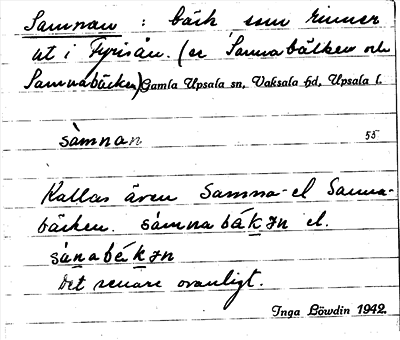 Samnan : bäck som rinner
ut i Fyrisån. (er Sannabäcken och
Samnabäcken) Gamla Upsala sn, Vaksala hd, Upsala l.
sàmnan 55
Kallas även Samna- el Sanna-
bäcken. sámnabék̲ɜn el.
sán̲abék̲ɜn
Det senare ovanligt.
Inga Löwdin 1942.